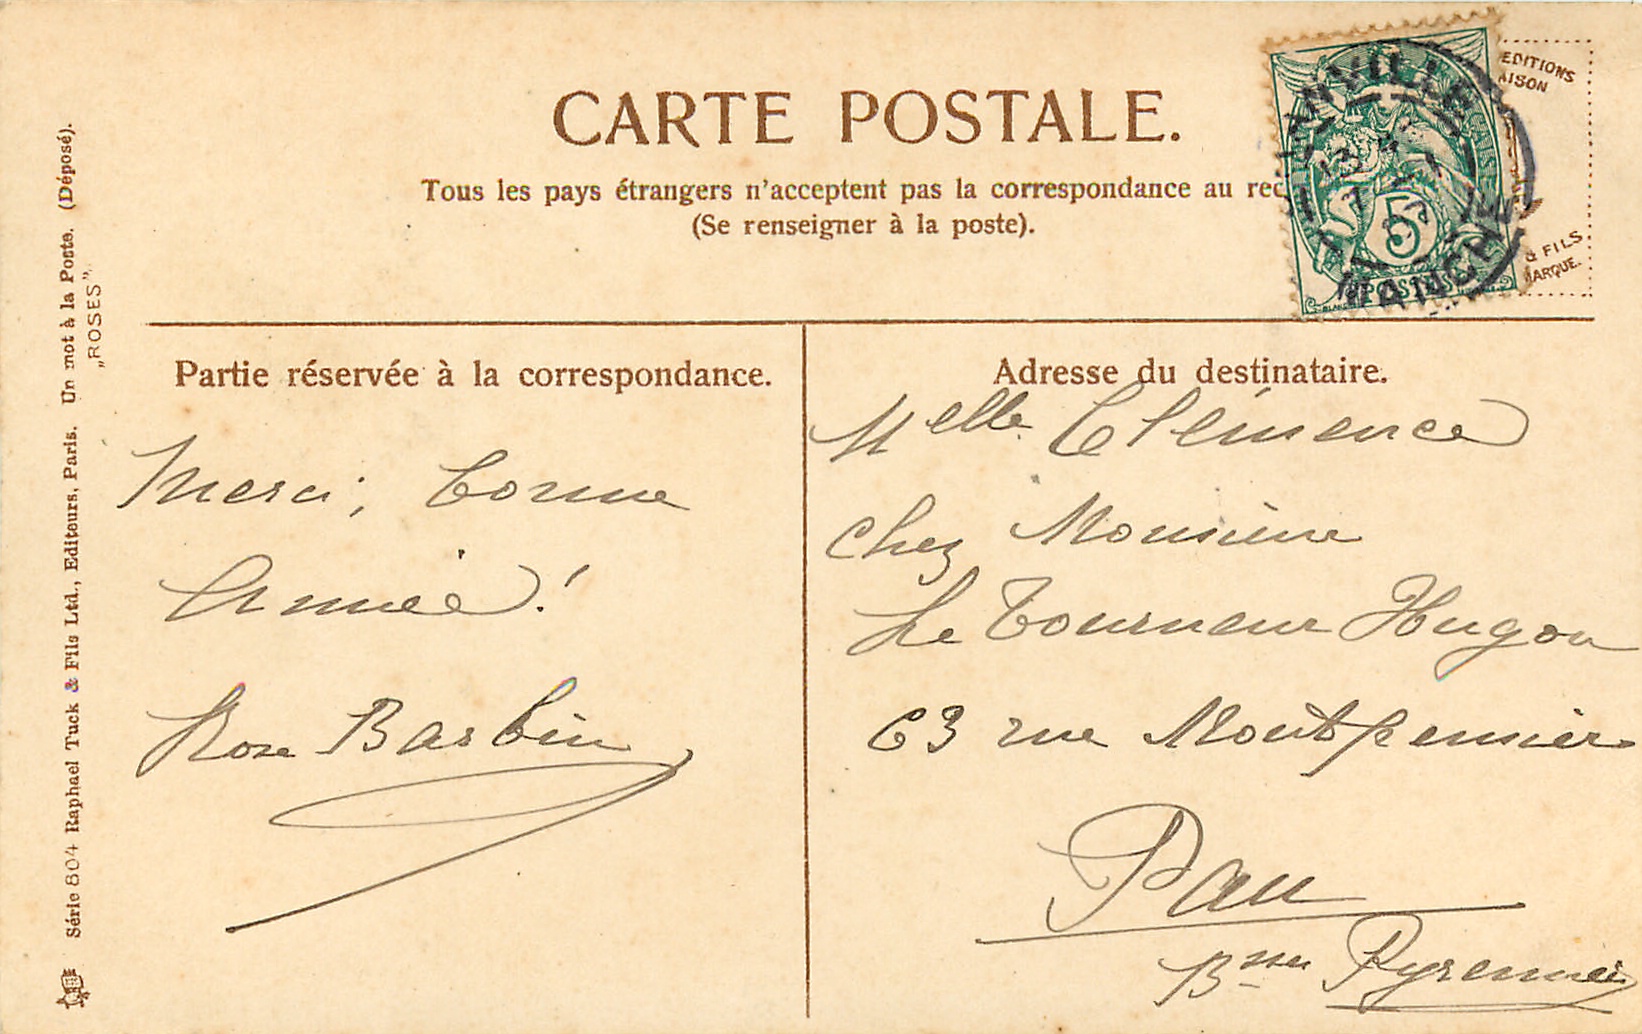 CARTE POSTALE.
Tous les pays étrangers n'acceptent pas la correspondance au rec
(Se renseigner à la poste).
EDITIONS
AISON
& FILS
MARQUE.
5
POSTES
MANCHE
Partie réservée à la correspondance.
Merci, bonne
Année!
Rose Barbin
Adresse du destinataire.
Melle Clémence
chez Monsieur
Le Tourneur Hugon
63 rue Montpensier
Pau
Bses Pyrennées
Série 804 Raphael Tuck & Fils Ltd., Editeurs, Paris. Un mot à la Poste. (Déposé).
„ROSES"